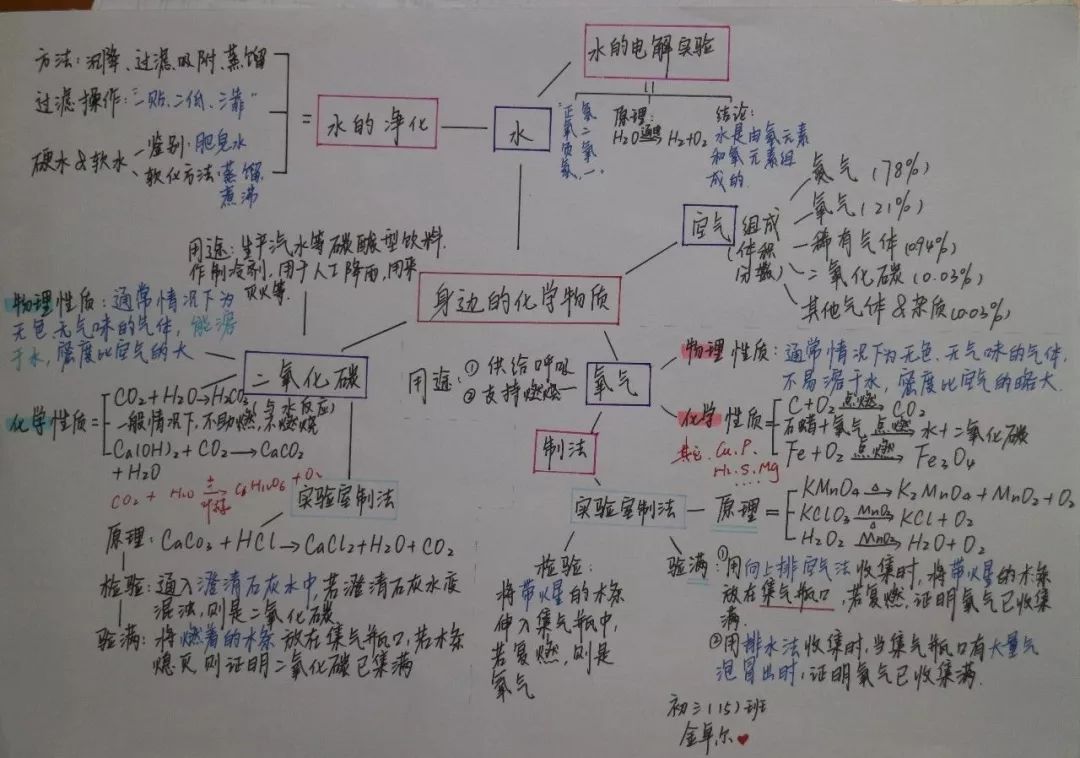 水的电解实验
"正氧
氧二
负氢
氢一
原理:
H₂O 通电→ H₂+O₂
结论:
水是由氢元素
和氧元素组
成的.
水
水的净化
方法: 沉降、过滤、吸附、蒸馏
过滤操作: "一贴、二低、三靠"
硬水&软水
鉴别: 肥皂水
软化方法: 蒸馏
煮沸
空气
组成
(体积
分数)
氮气 (78%)
氧气 (21%)
稀有气体 (0.94%)
二氧化碳 (0.03%)
其他气体&杂质 (0.03%)
身边的化学物质
二氧化碳
用途: 生产汽水等碳酸型饮料,
作制冷剂, 用于人工降雨, 用来
灭火等.
物理性质: 通常情况下为
无色、无气味的气体, 能溶
于水, 密度比空气的大
化学性质=
CO₂+H₂O→H₂CO₃
(与水反应)
一般情况下, 不助燃, 不燃烧
Ca(OH)₂+CO₂→CaCO₃
+H₂O
CO₂+H₂O →C₆H₁₂O₆+O₂
实验室制法
原理: CaCO₃+HCl→CaCl₂+H₂O+CO₂
检验: 通入澄清石灰水中, 若澄清石灰水变
混浊, 则是二氧化碳
验满: 将燃着的木条放在集气瓶口, 若木条
熄灭, 则证明二氧化碳已集满
氧气
用途: ① 供给呼吸
② 支持燃烧
物理性质: 通常情况下为无色、无气味的气体,
不易溶于水, 密度比空气的略大.
化学性质=
C+O₂ 点燃→ CO₂
石蜡+氧气 点燃→ 水+二氧化碳
Fe+O₂ 点燃→ Fe₃O₄
其它: Cu.P.
H₂.S.Mg
制法
实验室制法
原理=
KMnO₄ △→ K₂MnO₄+MnO₂+O₂
KClO₃ MnO₂△→ KCl+O₂
H₂O₂ MnO₂→ H₂O+O₂
检验:
将带火星的木条
伸入集气瓶中,
若复燃, 则是
氧气
验满: ①用向上排空气法收集时, 将带火星的木条
放在集气瓶口, 若复燃, 证明氧气已收集
满.
②用排水法收集时, 当集气瓶口有大量气
泡冒出时, 证明氧气已收集满.
初三(15)班
金卓尔